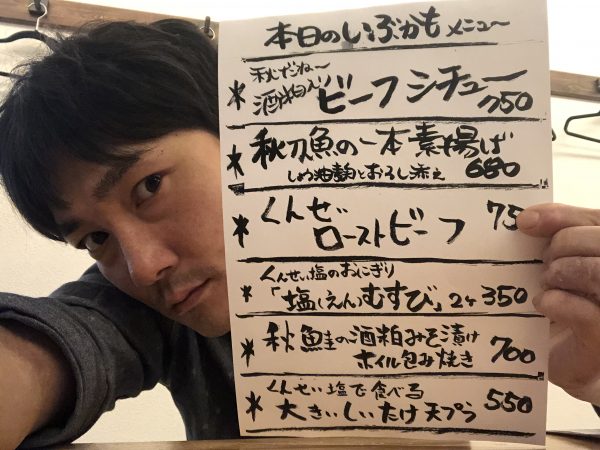 本日のいぶかもメニュー
秋だね〜
*酒粕入りビーフシチュー 750
*秋刀魚の一本素揚げ
しょう油麹とおろし添え 680
*くんせい
ローストビーフ 75
くんせい塩のおにぎり
*「塩(えん)むすび」2ヶ 350
*秋鮭の酒粕みそ漬け
ホイル包み焼き 700
くんせい塩で食べる
*大きいしいたけ天プラ 550